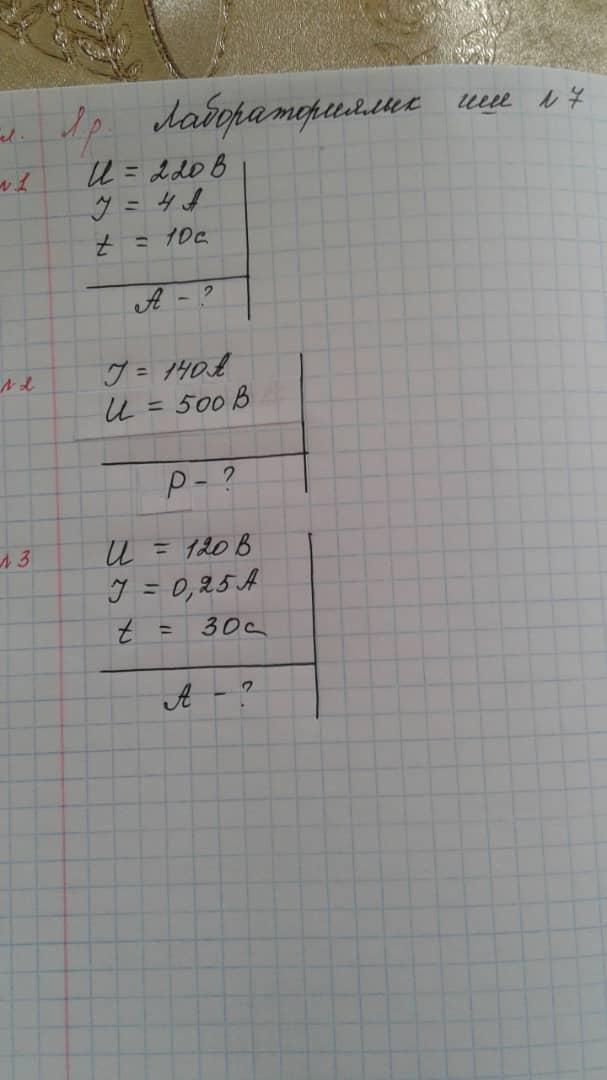 л. Iр. Лабораториялык иш №7
№1
U = 220В
J = 4А
t = 10с
А - ?
№2
J = 140А
U = 500В
Р - ?
№3
U = 120В
J = 0,25А
t = 30с
А - ?